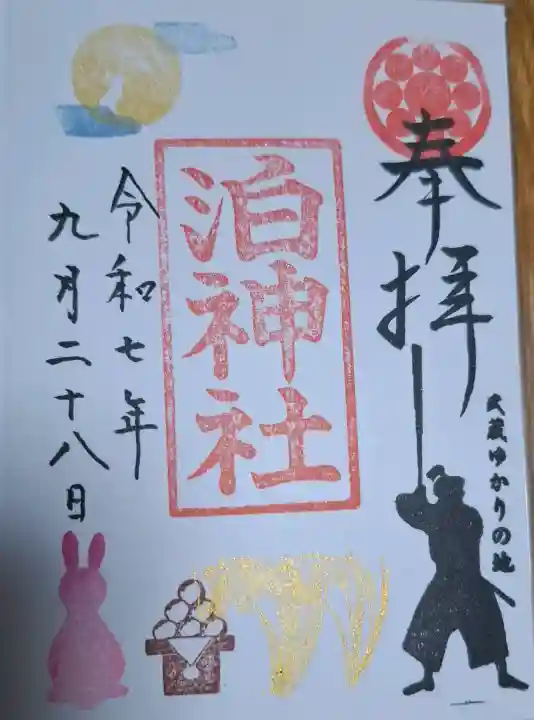 奉拝
武蔵ゆかりの地
泊神社
令和七年
九月二十八日